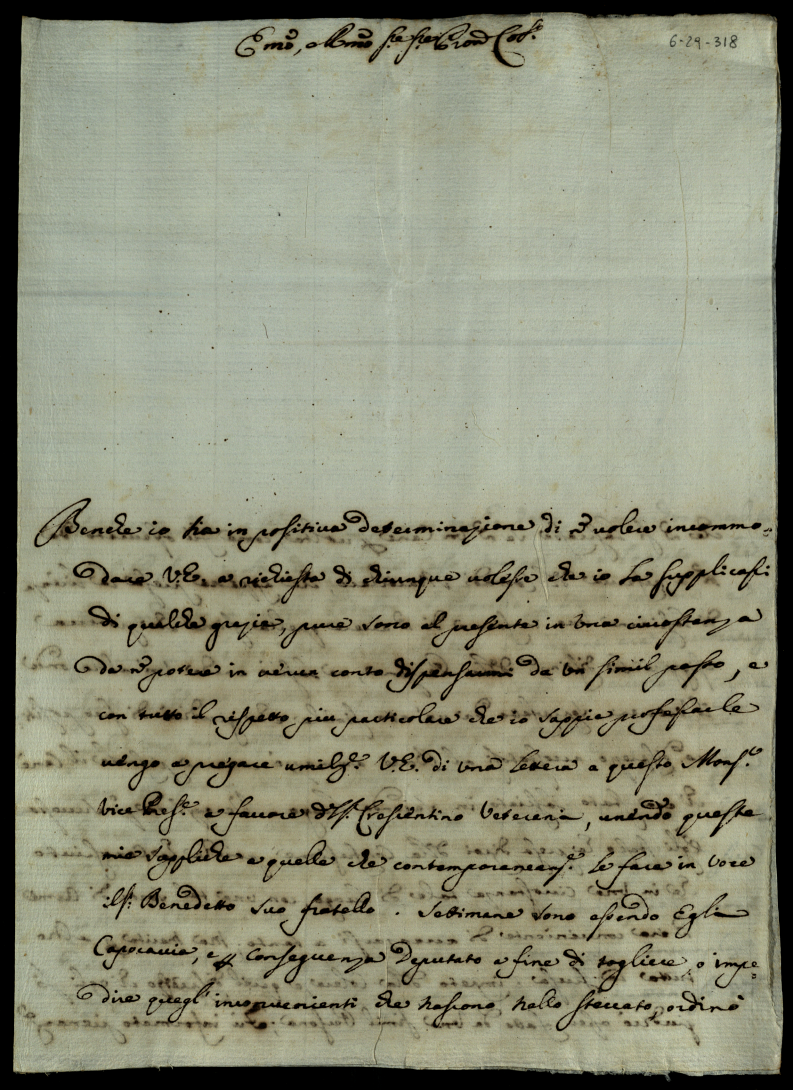 6-29-318
Emo, e Rmo Sre Sre Pron Col.
Benche io sia in positiva determinazione di ñ volere incommo=
dare V.E. a richiesta di chiunque volesse che io La supplicassi
di qualche grazia, pure sono al presente in una circostanza
da ñ potere in verun conto dispensarmi da un simil passo, e
con tutto il rispetto piu particolare che io sappia professarle
vengo a pregare umilmte. V.E. di una Lettera a questo Monsr.
Vice Preste. a favore del Sr. Crescentino Veterani, unendo queste
mie Suppliche a quelle che contemporaneamte. Le fara in voce
il Sr. Benedetto suo fratello. Settimane sono essendo Egli
Capocaccia, e p conseguenza Deputato a fine di togliere, o impe=
dire quegl' inconvenienti che nascono nello steccato, ordinò